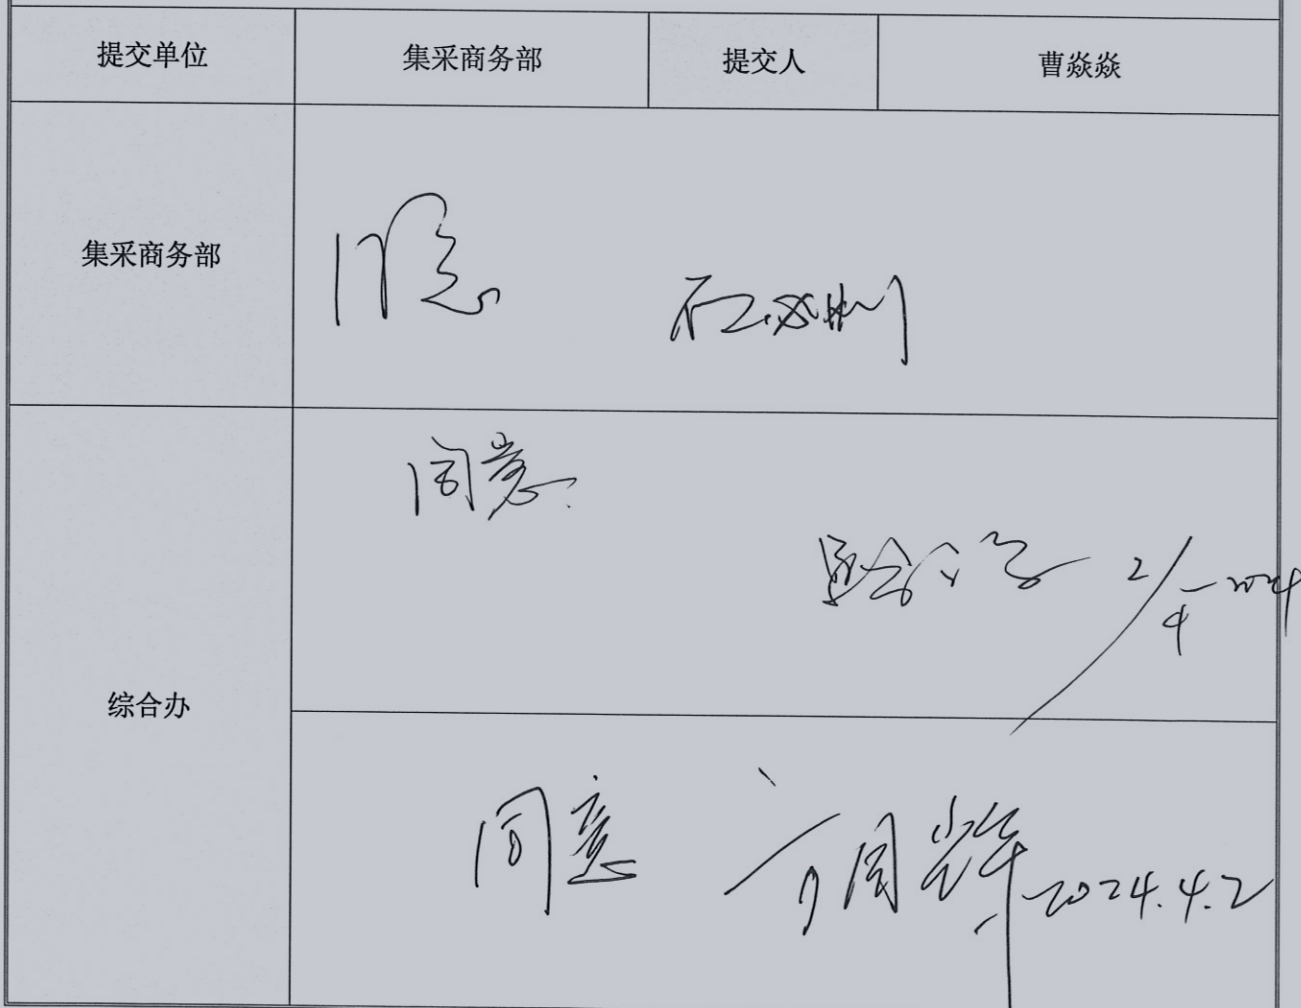 提交单位 集采商务部 提交人 曹焱焱
集采商务部 同意
综合办
同意
2/4 2024
同意 2024.4.2